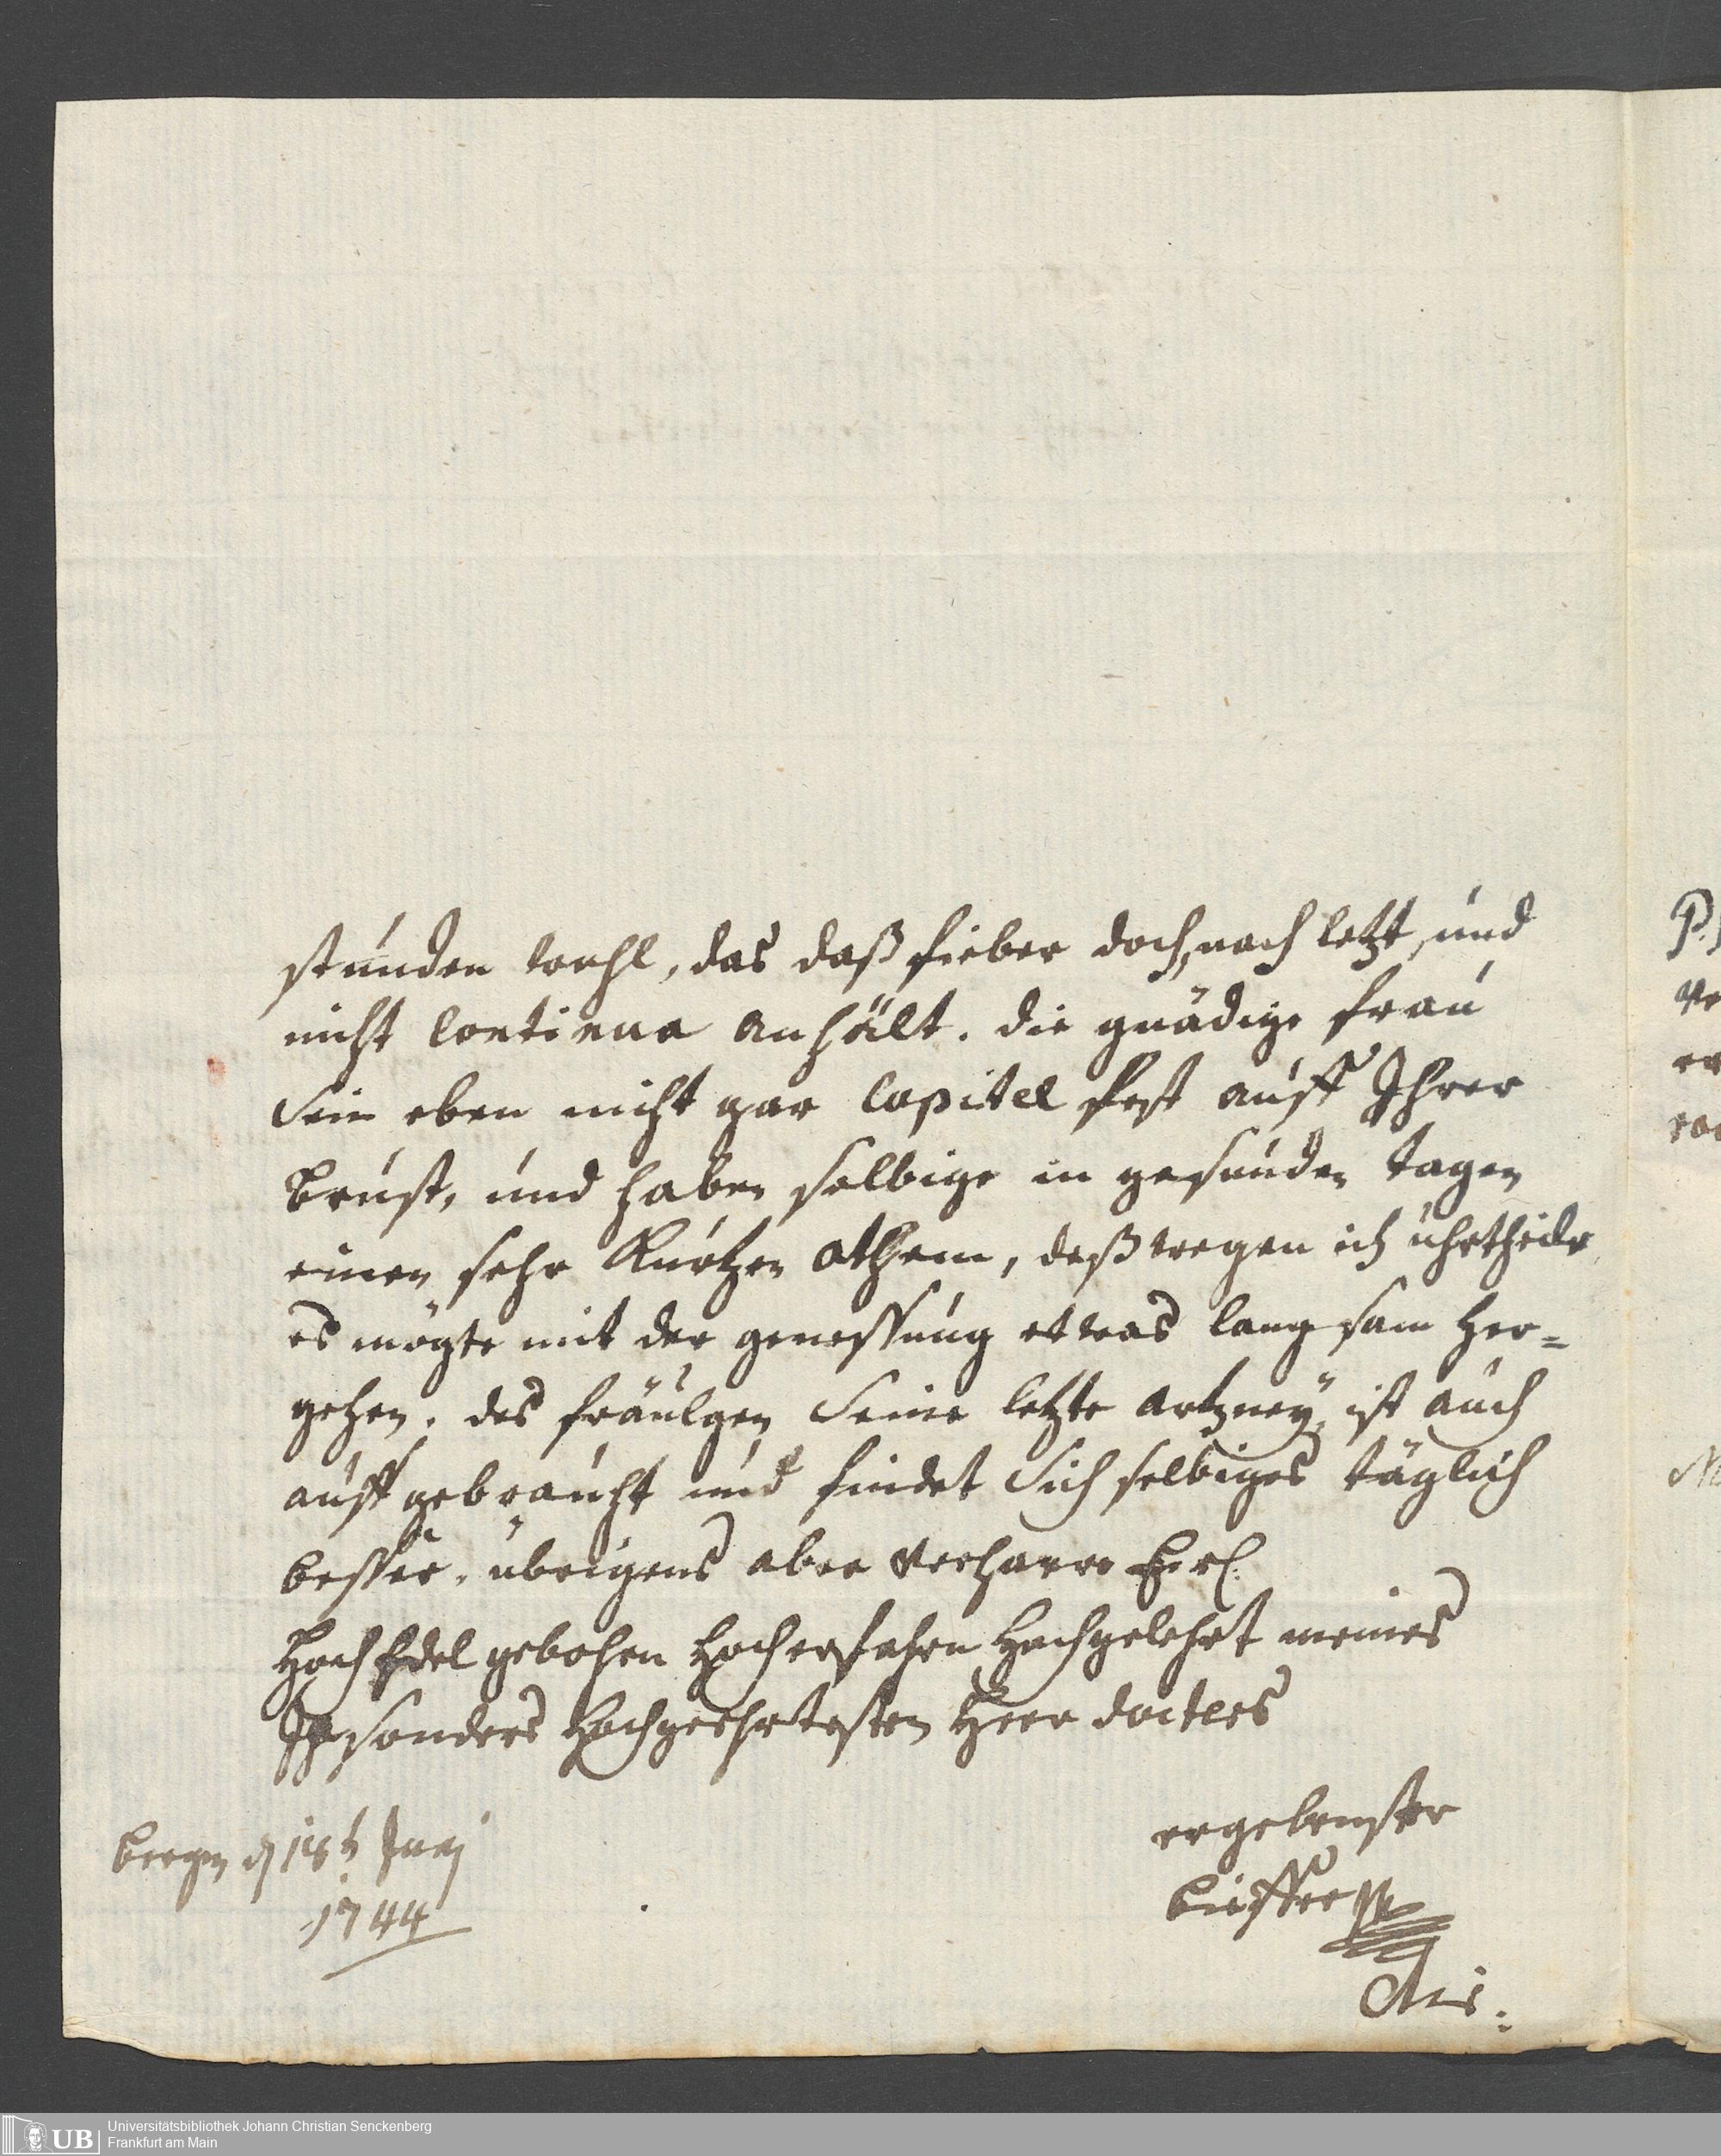 stunden wohl, das daß fieber doch nach letzt und
nicht Contienua anhält. die gnädige frau
Sein eben nicht gar Capitel fest auff Ihrer
Brust, und haben selbige in gesunden tagen
einen sehr Kurtzen Athem, deßwegen ich uhrtheile
es mögte mit der genessung etwas lang sam her=
gehen. des fräulgen Seine letzte artzney ist auch
auff gebraucht und findet Sich selbiges täglich
besser. übrigens aber verharre
Hoch Edel gebohrn Hocherfahrn Hochgelehrt meines
Insonders Hochgeehrtesten Herr docters
ergebenster
Bergen d 18t Junj
1744
P.
ve
er
M
UB Universitätsbibliothek Johann Christian Senckenberg
Frankfurt am Main